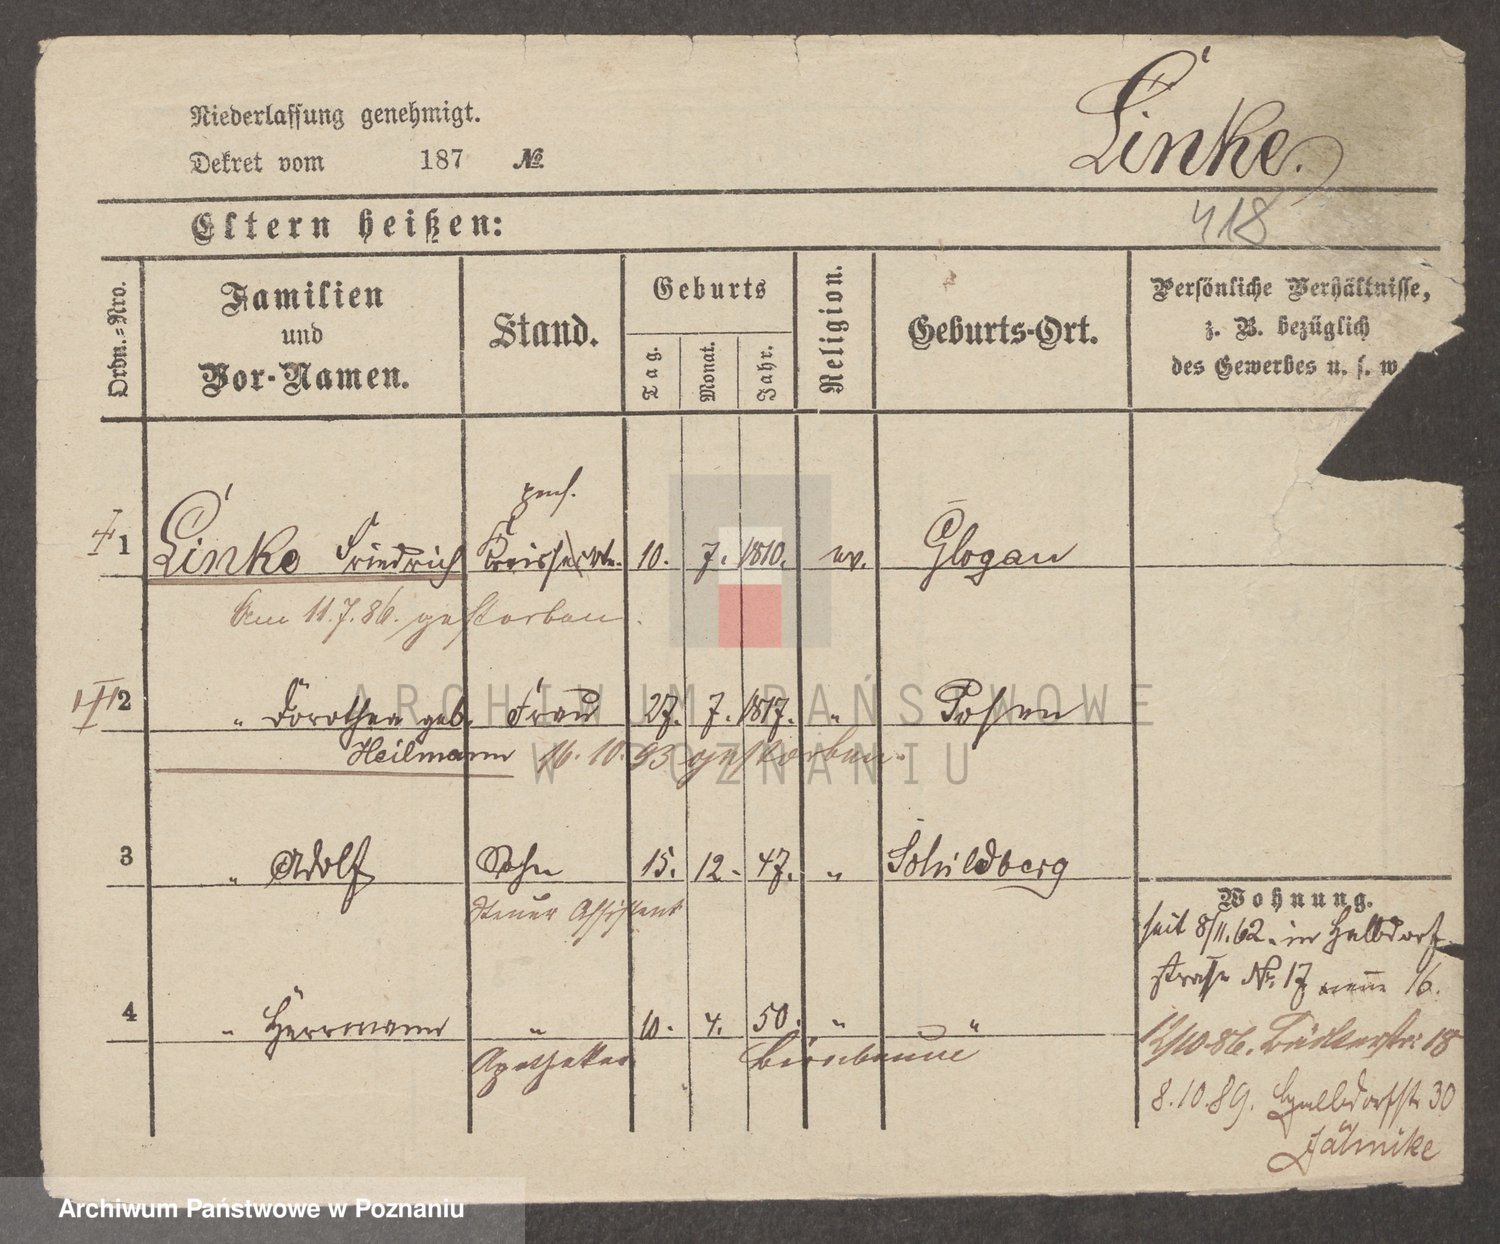 Niederlassung genehmigt.
Dekret vom 187 №
Linke.
418
Eltern heißen:
Ordn.-Nro.
Familien
und
Vor-Namen.
Stand.
Geburts
Tag.
Monat.
Jahr.
Religion.
Geburts-Ort.
Persönliche Verhältnisse,
z. B. bezüglich
des Gewerbes u. s. w
pens.
1 Linke Friedrich 10. 7. 1810. ev. Glogau
Am 11.7.86. gestorben.
2 " Dorothea geb. Frau 27. 7. 1817. " Posen
Heilmann 16. 10. 93 gestorben.
3 " Adolf Sohn 15. 12. 47. " Schildberg
Steuer Assistent
4 " Herrmann " 10. 4. 50. " "
Apotheker Birnbaum
Wohnung.
seit 8/11.62. in Halbdorf
straße No. 17 neue 16.
12/10.86. Bäckerstr. 18
8.10.89. Halbdorfstr 30
Jähnike
ARCHIWUM PAŃSTWOWE
W POZNANIU
Archiwum Państwowe w Poznaniu